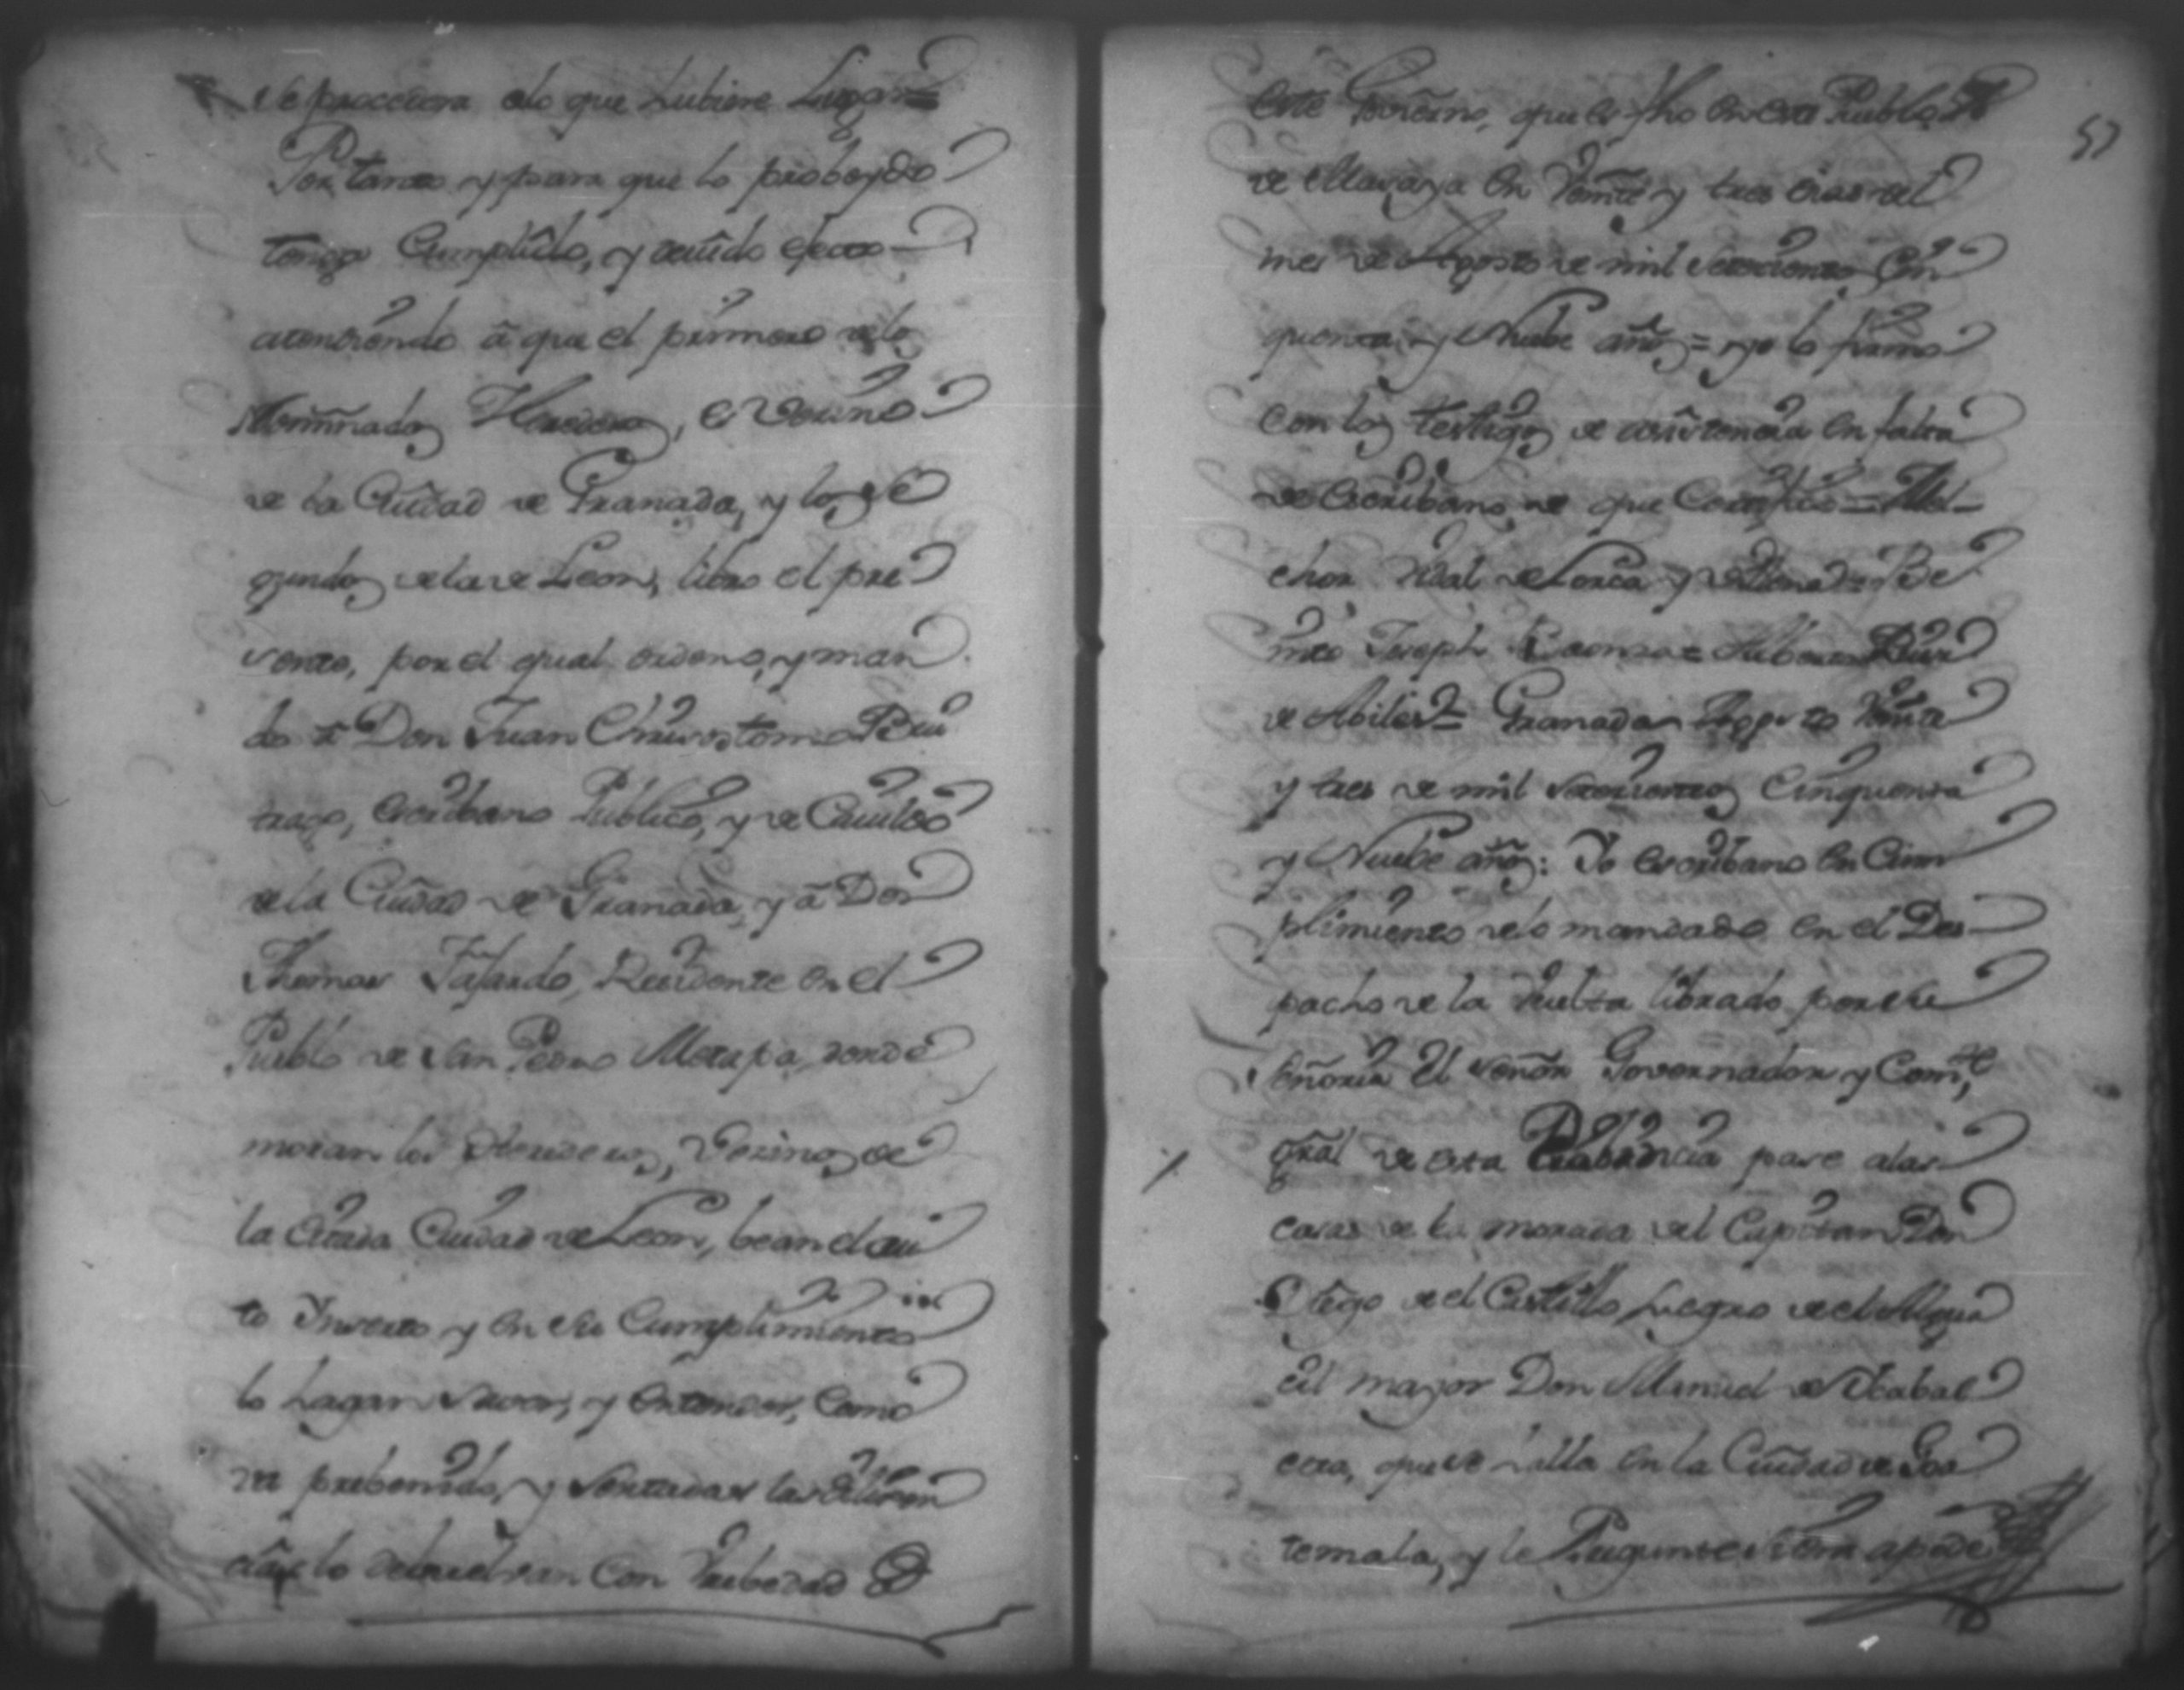 se procedera alo que hubiere Lugar =
Por tanto y para que lo probeydo
tenga Cumplido, y devido efecto
atendiendo â que el primero delos
Nominados Herederos, es Vezino
de la Ciudad de Granada, y los se
gundos dela de Leon, libro el pre
sente, por el qual ordeno, y man
do a Don Juan Chrisostomo Bui
trago, escribano Publico, y de Cavildo
dela Ciudad de Granada, y â Don
Thomas Fajardo, Residente en el
Pueblo de San Pedro Metapa, donde
moran los Herederos, Vezinos de
la Citada Ciudad de Leon, bean el au
to Inserto y en su Cumplimiento
lo hagan saver, y entender, como
va prebenido, y sentadas las diligen
cias lo debuelvan con brebedad â
este Govierno, que es fho en este Pueblo
de Masaya en Veinte y tres dias del
mes de Agosto de mil setecientos Cin
quenta y Nuebe años = y lo firmo
con los testigos de asistencia en falta
de escribano, de que Certifico = Mel-
chor Vidal de Lorca y Villena = Be
nito Joseph =
de Abiles = Granada Agosto Veinte
y tres de mil setecientos Cinquenta
y Nuebe años: Yo escribano en Cum
plimiento delo mandado en el Des
pacho de la buelta librado por su
señoria el señor Governador y Com.te
gral de esta Probincia pase alas
casas de la morada del Capitan Don
Diego de el Castillo suegro de el Algua
cil mayor Don Manuel de
que se halla en la Ciudad de Goa
temala, y le Pregunte si era apode
57